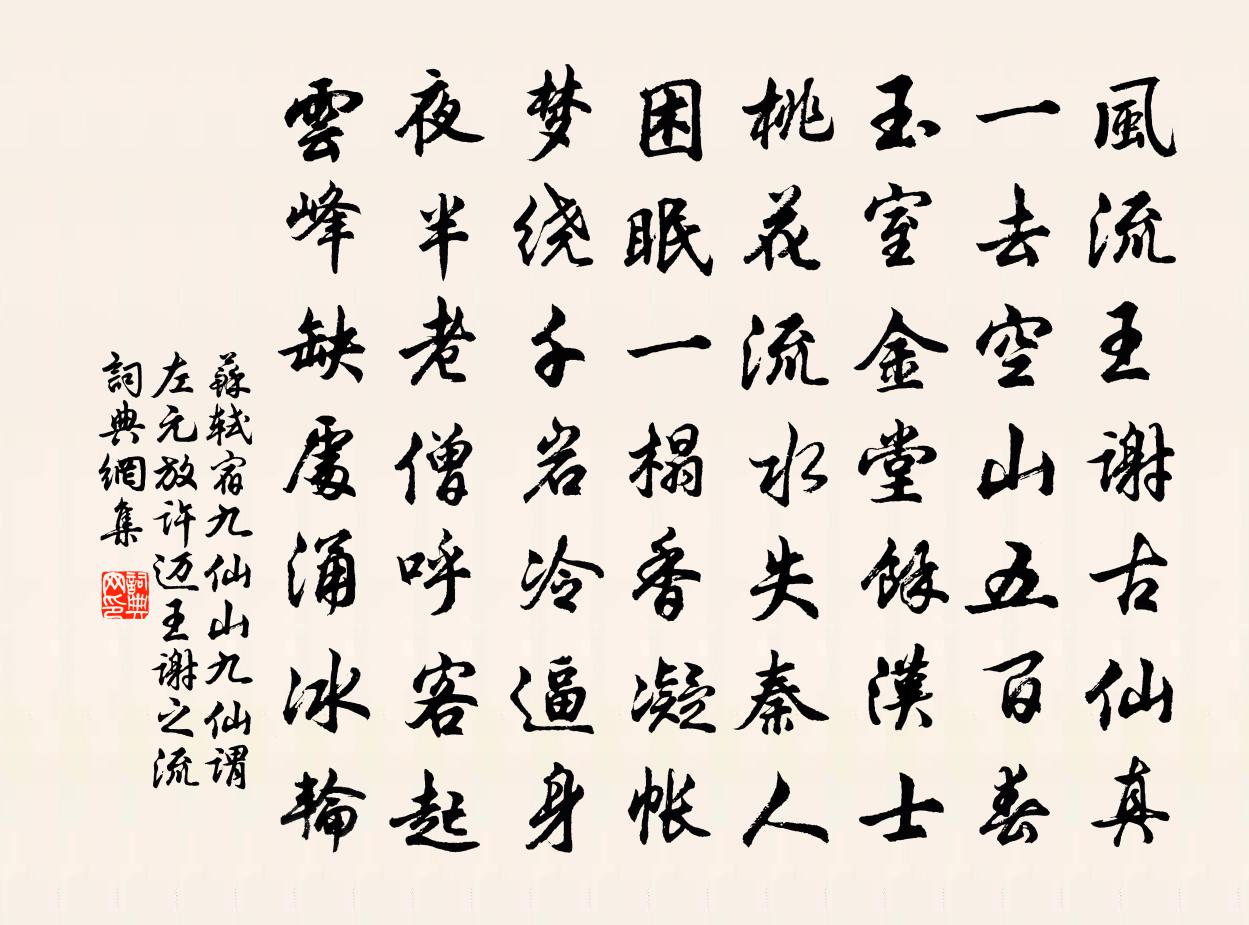 風流王謝古仙真
一去空山五百春
玉室金堂餘漢士
桃花流水失秦人
困眠一榻香凝帐
梦绕千岩冷逼身
夜半老僧呼客起
雲峰缺處涌冰輪
蘇軾宿九仙山九仙谓
左元放许迈王謝之流
詞典網集
詞典
网印